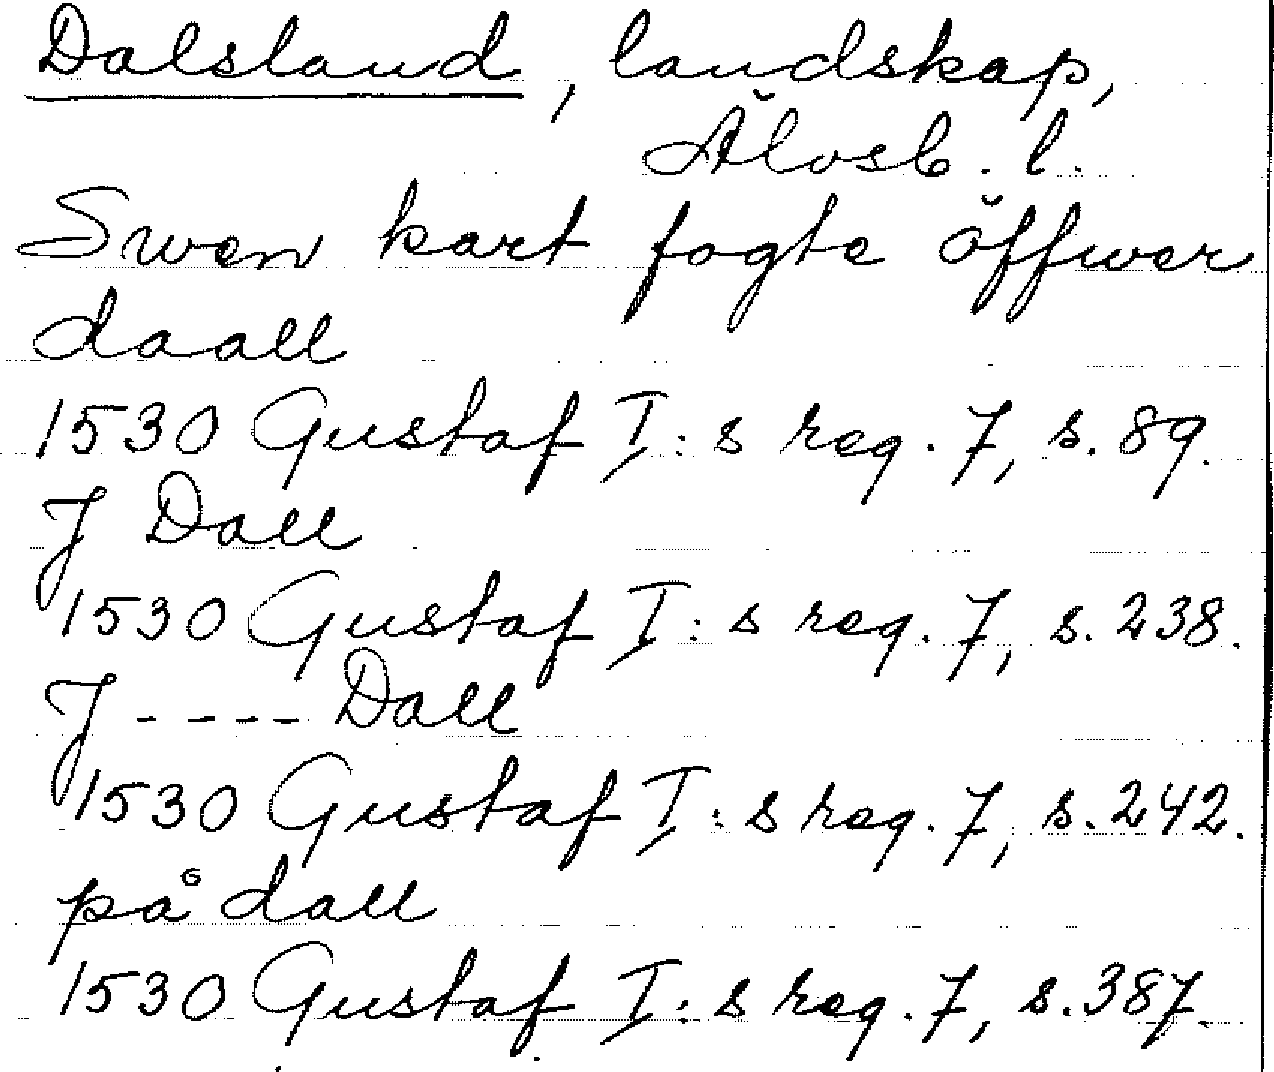 Dalsland, landskap,
Älvsb. l.
Swen kart fogte öffwer
daall
1530 Gustaf I:s reg. 7, s. 89.
J Dall
1530 Gustaf I:s reg. 7, s. 238.
J ---- Dall
1530 Gustaf I:s reg. 7, s. 242.
på dall
1530 Gustaf I:s reg. 7, s. 387.